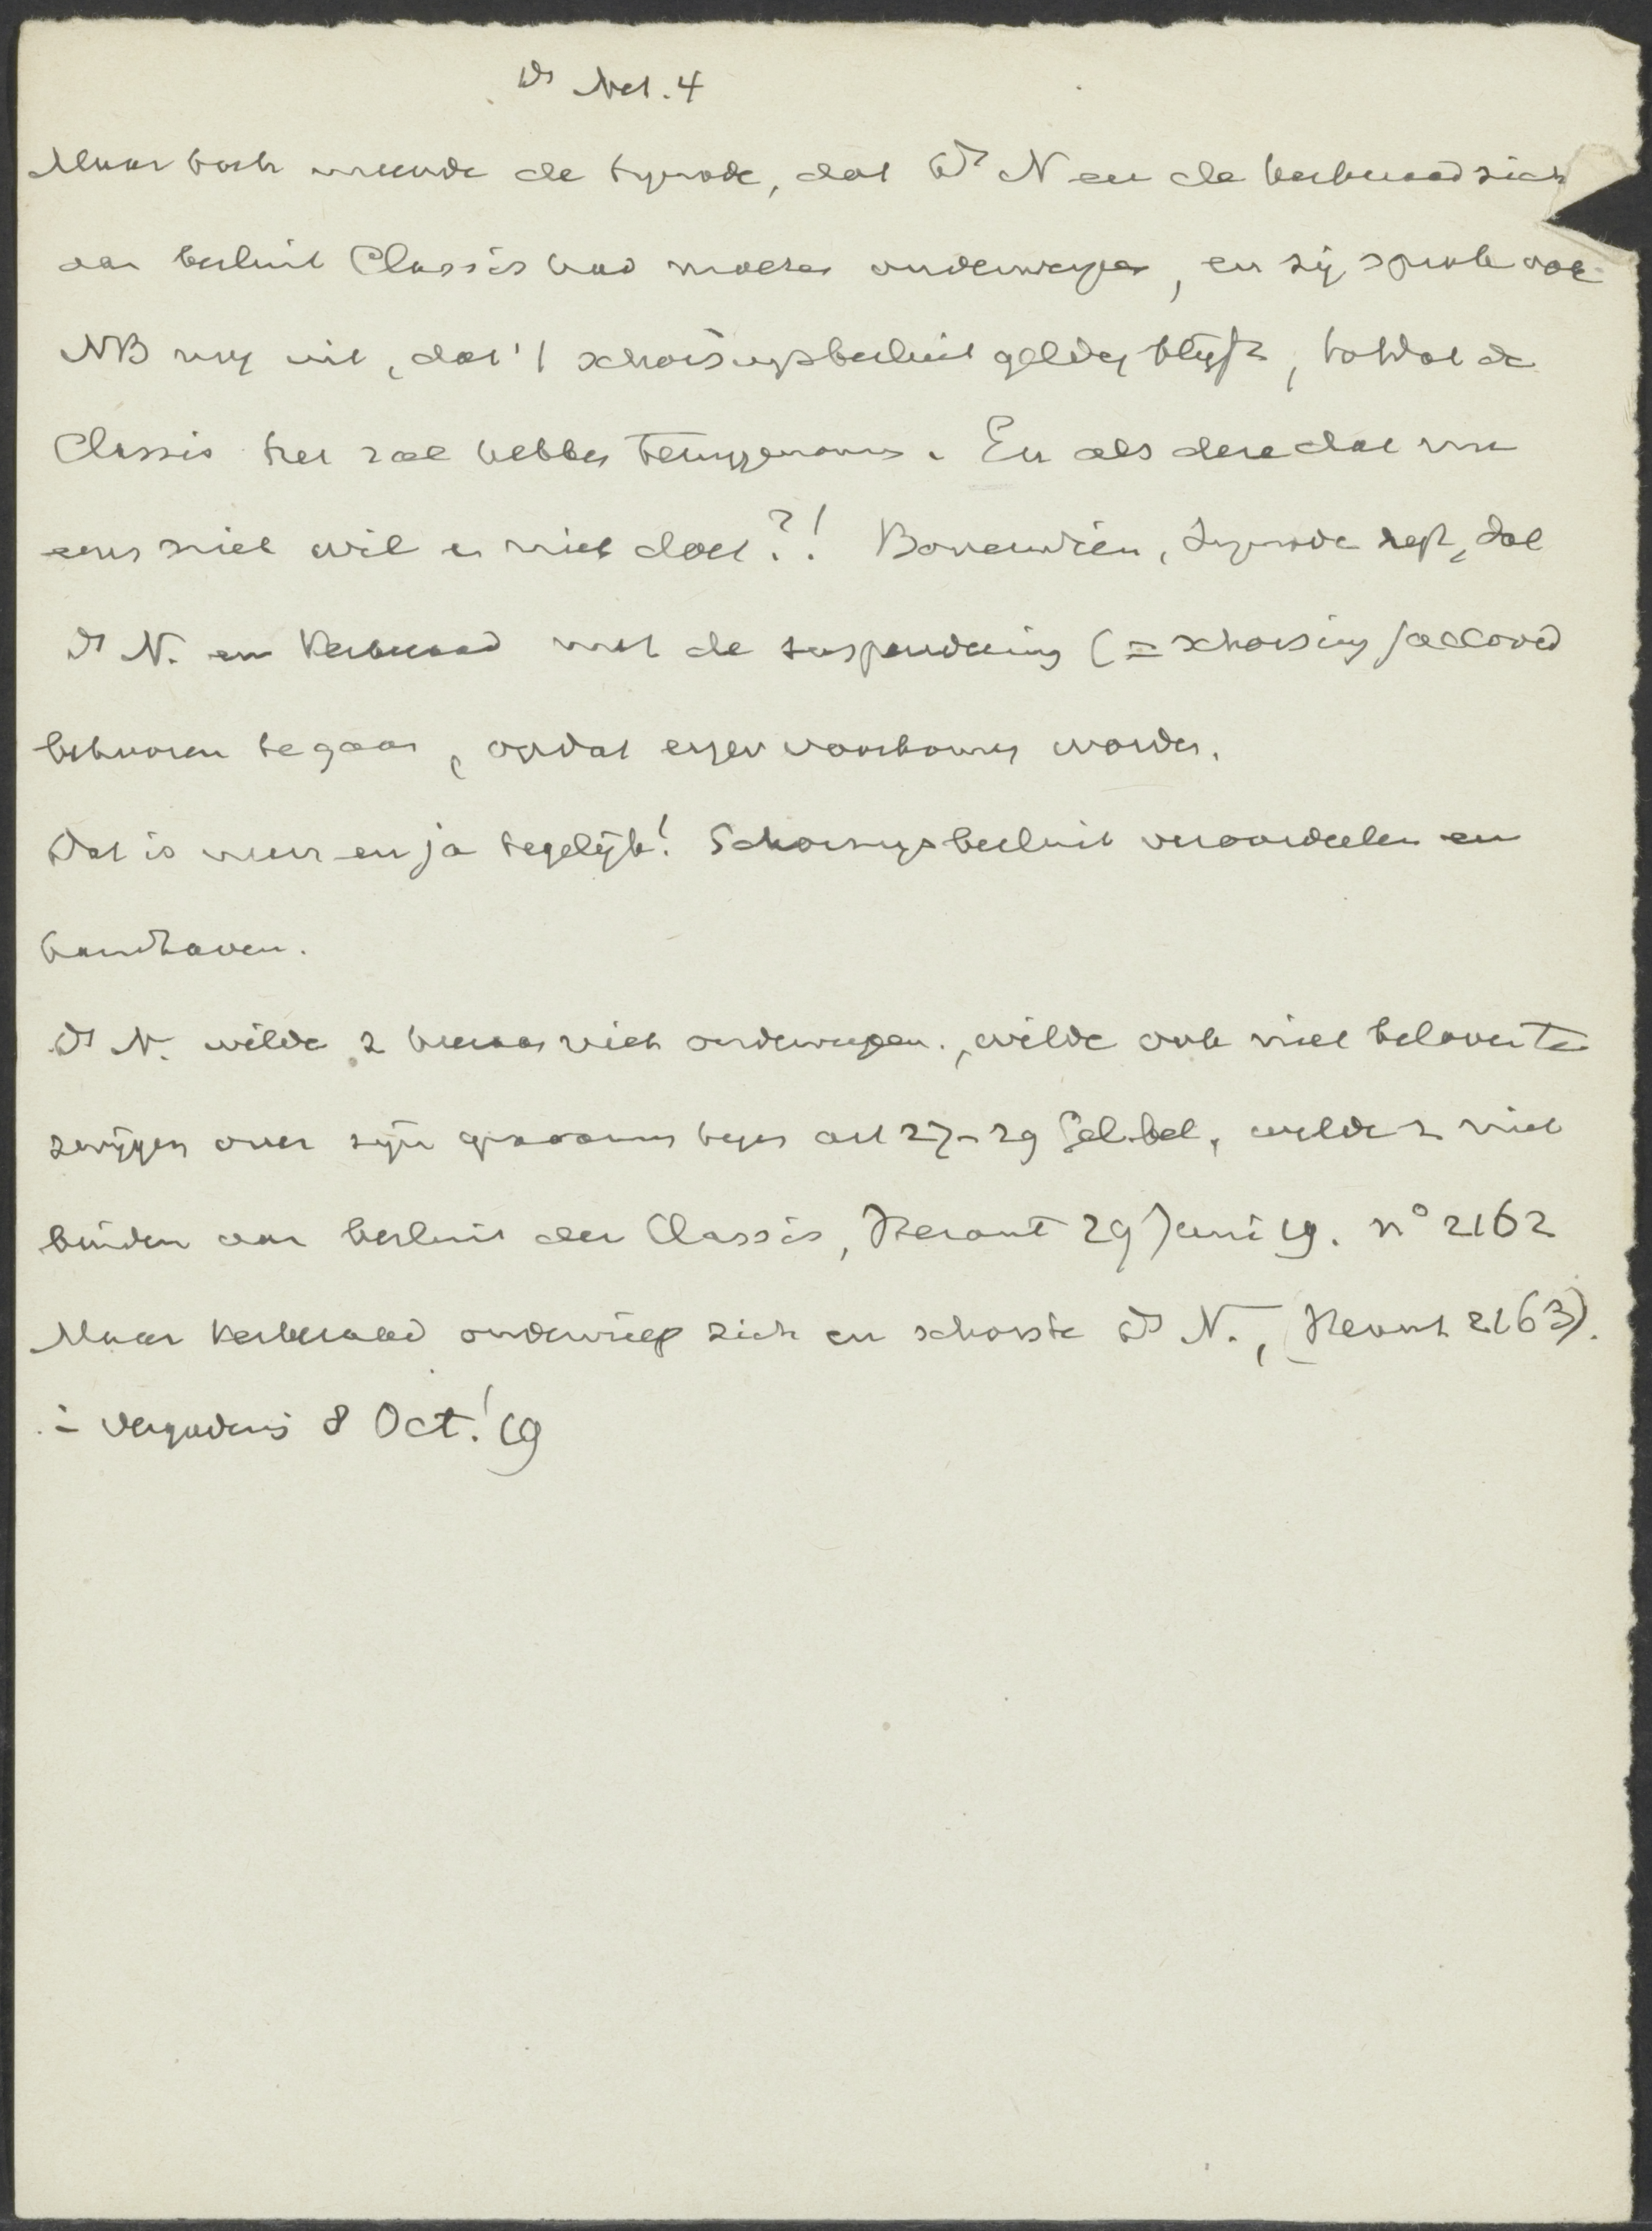 Ds Net. 4
Maar toch meende de Synode, dat Ds N en de kerkeraad zich
aan besluit Classis had moeten onderwerpen, en zij sprak ook
NB nog uit, dat 't schorsingsbesluit geldig blijft, totdat de
Classis het zal hebben teruggenomen. En als deze dat nu
eens niet wil en niet doet?! Bovendien, Synode zegt, dat
Ds N. en Kerkeraad met de suspendeering (= schorsing) accoord
behooren te gaan, opdat erger voorkomen worde.
Dat is neen en ja tegelijk! Schorsingsbesluit veroordeelen en
handhaven.
Ds N. wilde z hieraan niet onderwerpen, wilde ook niet beloven te
zwijgen over zijn gravamen tegen art 27-29 Gel. bel., wilde z niet
binden aan besluit der Classis, Heraut 29 Juni 19. no 2162
Maar Kerkeraad onderwierp zich en schorste Ds N., (Heraut 2163).
in vergadering 8 Oct. '19